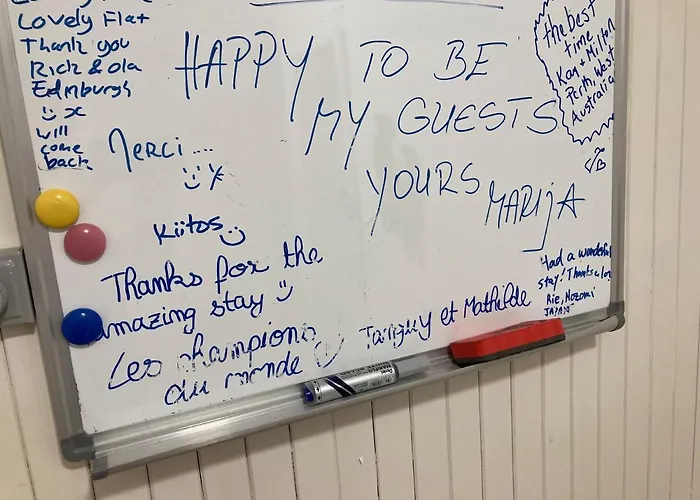 Lovely Flat
Thank you
Rich & Ola
Edinburgh
x
will
come
back
HAPPY TO BE
MY GUESTS
YOURS MARIJA
the best
time
Kay & Milton
Perth, West
Australia
Merci ....
Kiitos
Thanks for the
amazing stay
Les champions
du monde
Tanguy et Mathilde
Had a wonderful
stay! Thanks a lot
Rie, Nozomi
JAPAN